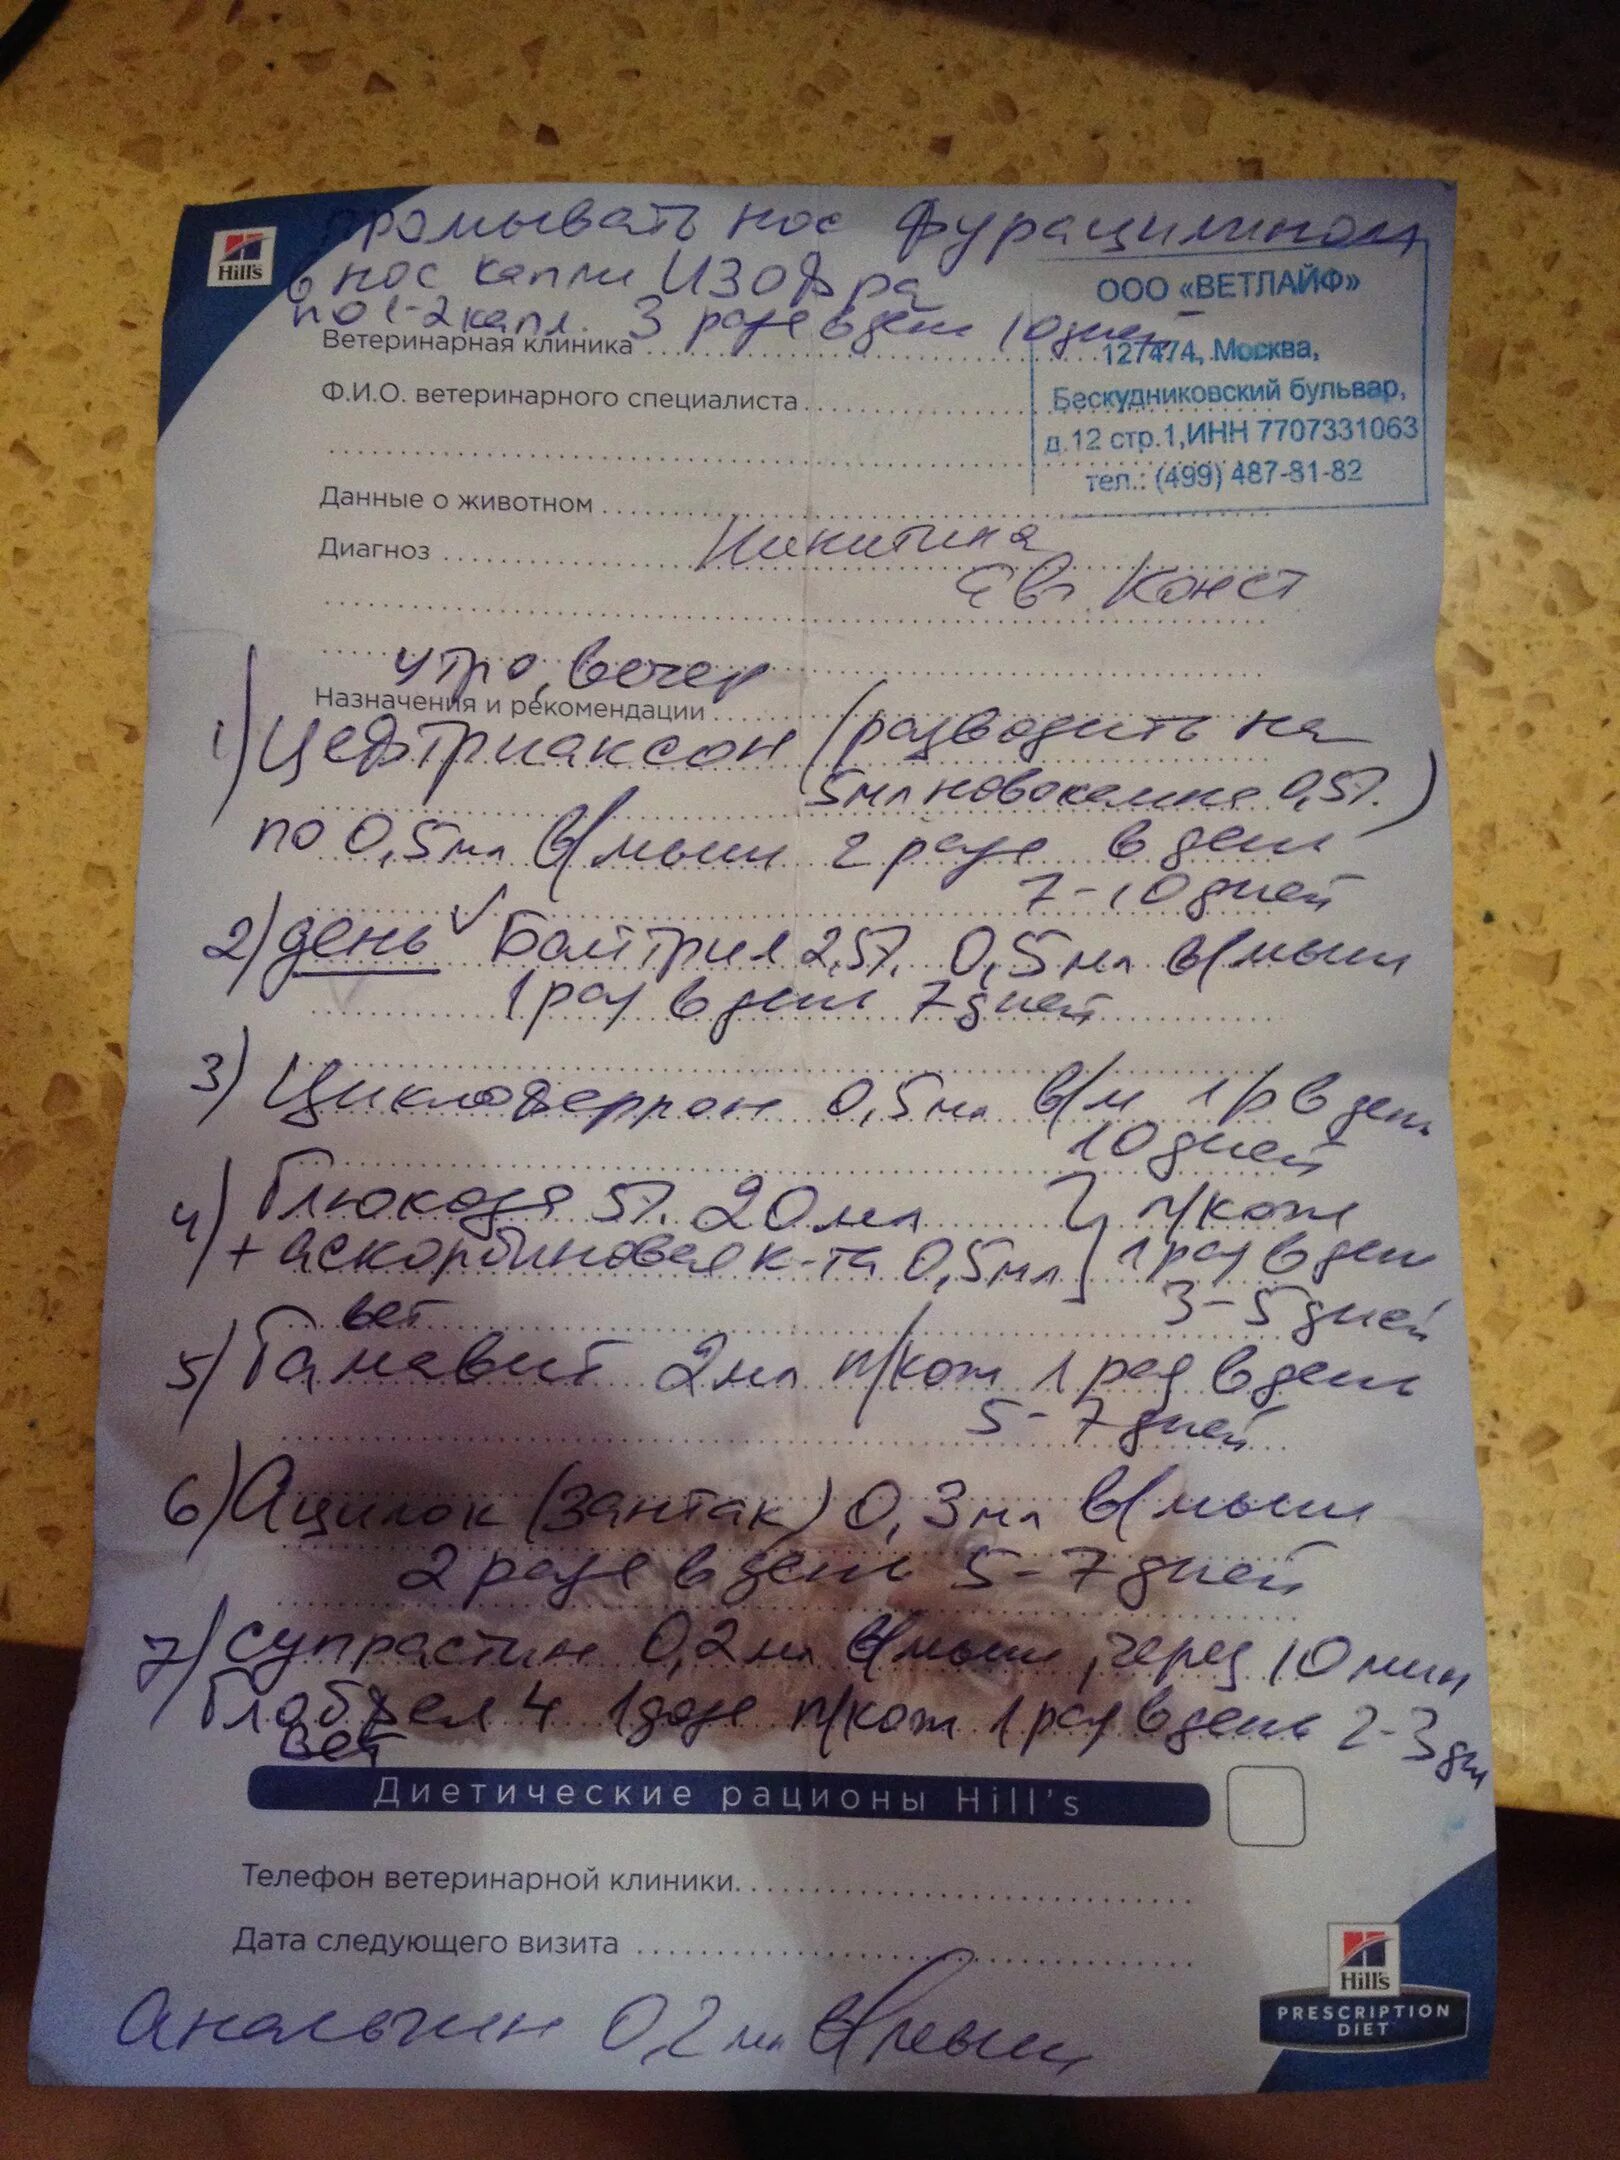 Промывать нос Фурацилином
Hill's
в нос капли Изофра
по 1-2 капл. 3 раза в день 10 дней
ООО «ВЕТЛАЙФ»
127474, Москва,
Бескудниковский бульвар,
д.12 стр.1,ИНН 7707331063
тел.: (499) 487-81-82
Ветеринарная клиника
Ф.И.О. ветеринарного специалиста
Данные о животном
Диагноз Никитина
Евг Конст
утро, вечер
Назначения и рекомендации
1) Цефтриаксон (разводить на
5мл новокаина 0,5%.)
по 0,5мл в/мышц 2 раза в день
7-10 дней
2) день Байтрил 2,5%. 0,5мл в/мышц
1 раз в день 7 дней
3) Циклоферрон 0,5мл в/м 1 р в день
10 дней
4) Глюкоза 5%. 20мл } п/кож
+ аскорбиновая к-та 0,5мл } 1 раз в день
3-5 дней
вет
5) Гамавит 2мл п/кож 1 раз в день
5-7 дней
6) Ацилок (Зантак) 0,3мл в/мышц
2 раза в день 5-7 дней
7) Супрастин 0,2мл в/мышц, через 10 мин
Глобфел 4 1 доза п/кож 1 раз в день 2-3 дн
вет
Диетические рационы Hill's
Телефон ветеринарной клиники
Дата следующего визита
Hill's
PRESCRIPTION
DIET
Анальгин 0,2мл в/мышц